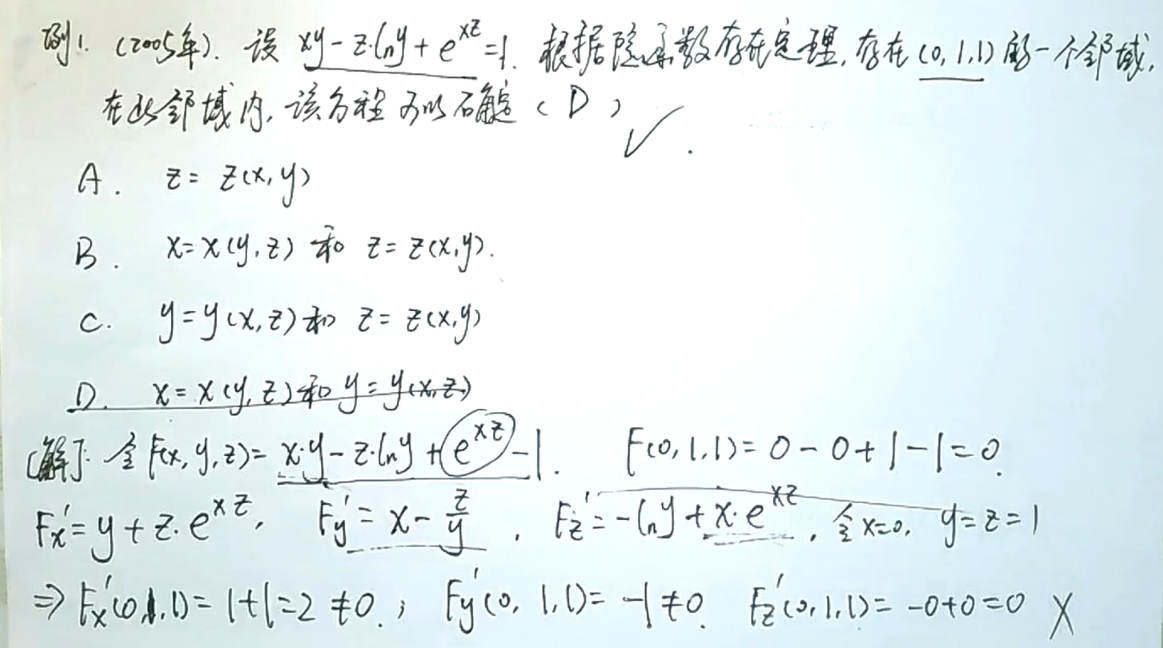 例1. (2005年). 设 xy-z·lny+e^{xz}=1. 根据隐函数存在定理, 存在(0,1,1)的一个邻域,
在此邻域内, 该方程可以确定 ( D ) ✓.
A. z= z(x,y)
B. x=x(y,z) 和 z= z(x,y).
C. y=y(x,z)和 z= z(x,y)
D. x=x(y,z)和y=y(x,z)
[解]: 令F(x,y,z)= x·y-z·lny+e^{xz}-1. F(0,1,1)=0-0+1-1=0.
Fx'=y+z·e^{xz}, Fy'=x-z/y, Fz'=-lny+x·e^{xz}, 令x=0, y=z=1
⇒ Fx'(0,1,1)=1+1=2≠0.; Fy'(0,1,1)=-1≠0. Fz'(0,1,1)=-0+0=0 ×